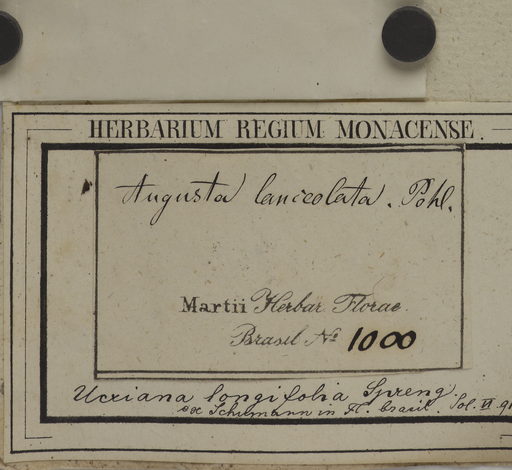 HERBARIUM REGIUM MONACENSE.
Augusta lanceolata. Pohl.
Martii Herbar Florae
Brasil No 1000
Ucriana longifolia Spreng.
in Fl. brasil. VI